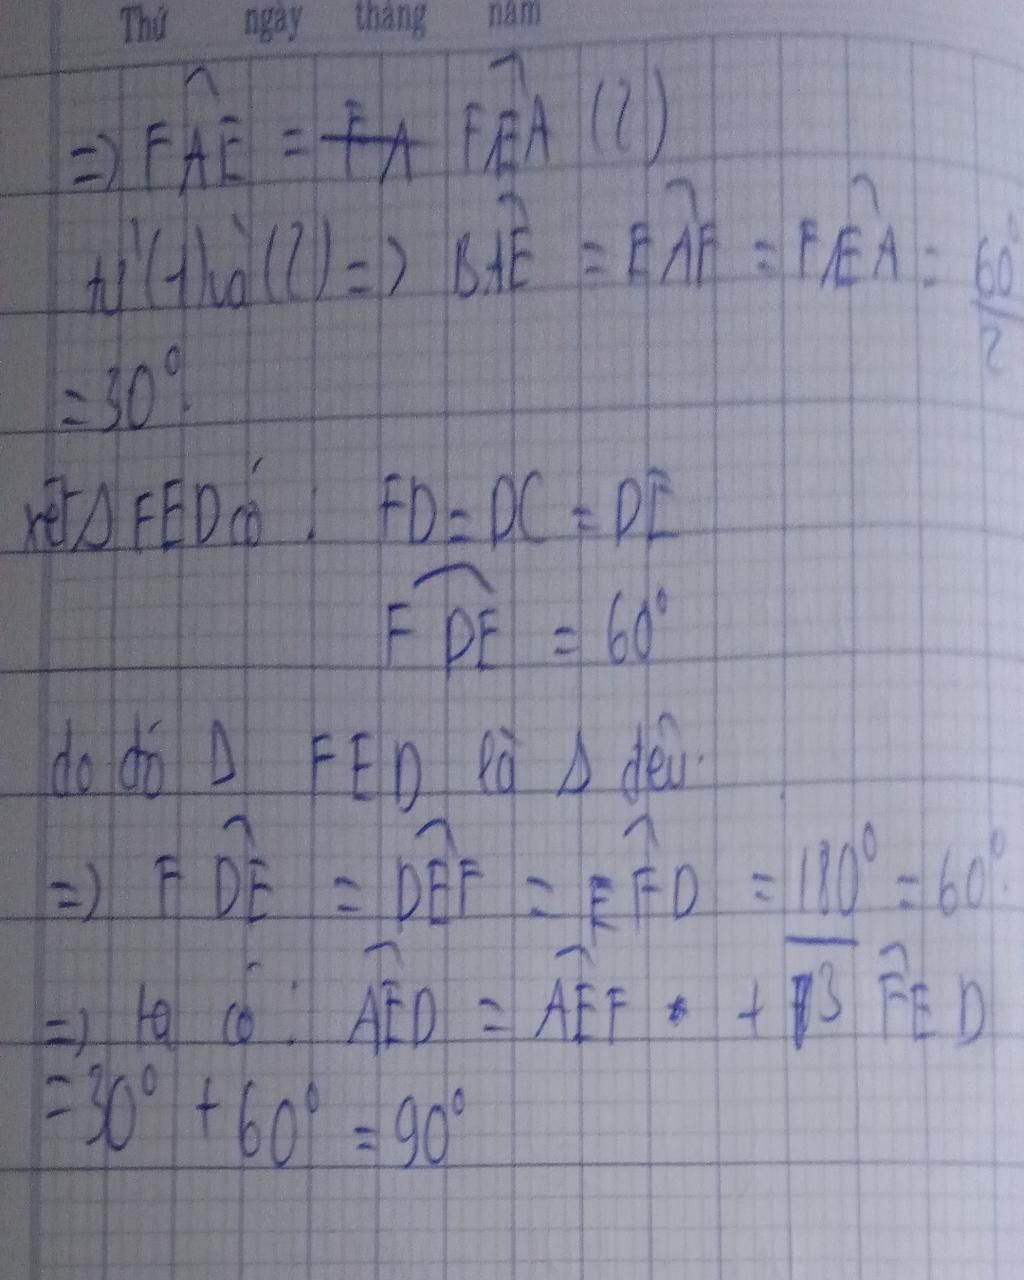 Thứ ngày tháng năm
=> FAÊ = FA FÊA (2)
từ (1) và (2) => BAÊ = EÂF = FÊA = 60°/2
= 30°.
xét Δ FED có : FD = DC = DE
FDE = 60°
do đó Δ FED là Δ đều.
=> FDE = DÊF = EFD = 180°/3 = 60°.
=> ta có : AÊD = AÊF + FED
= 30° + 60° = 90°